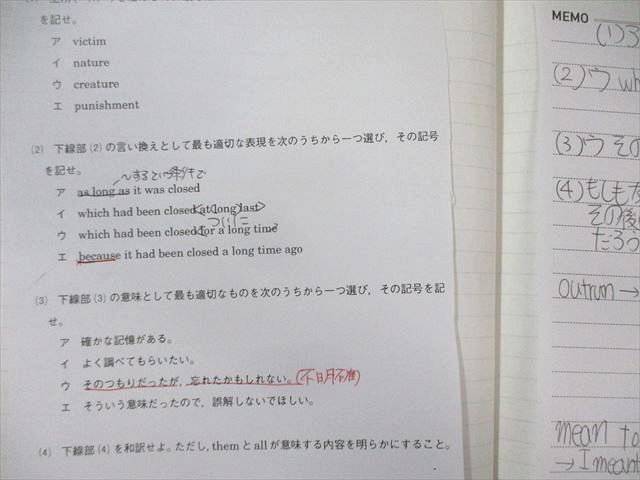 を記せ。
ア victim
イ nature
ウ creature
エ punishment
(2) 下線部(2)の言い換えとして最も適切な表現を次のうちから一つ選び，その記号
を記せ。
〜するという条件で
ア as long as it was closed
イ which had been closed at long last
ついに
ウ which had been closed for a long time
エ because it had been closed a long time ago
(3) 下線部(3)の意味として最も適切なものを次のうちから一つ選び，その記号を記
せ。
ア 確かな記憶がある。
イ よく調べてもらいたい。
ウ そのつもりだったが，忘れたかもしれない。(不明確)
エ そういう意味だったので，誤解しないでほしい。
(4) 下線部(4)を和訳せよ。ただし，themとallが意味する内容を明らかにすること。
MEMO
(1)
(2) ウ wh
(3) ウ その
(4) もしも
その後
だろう
outrun →
mean to
→ I meant